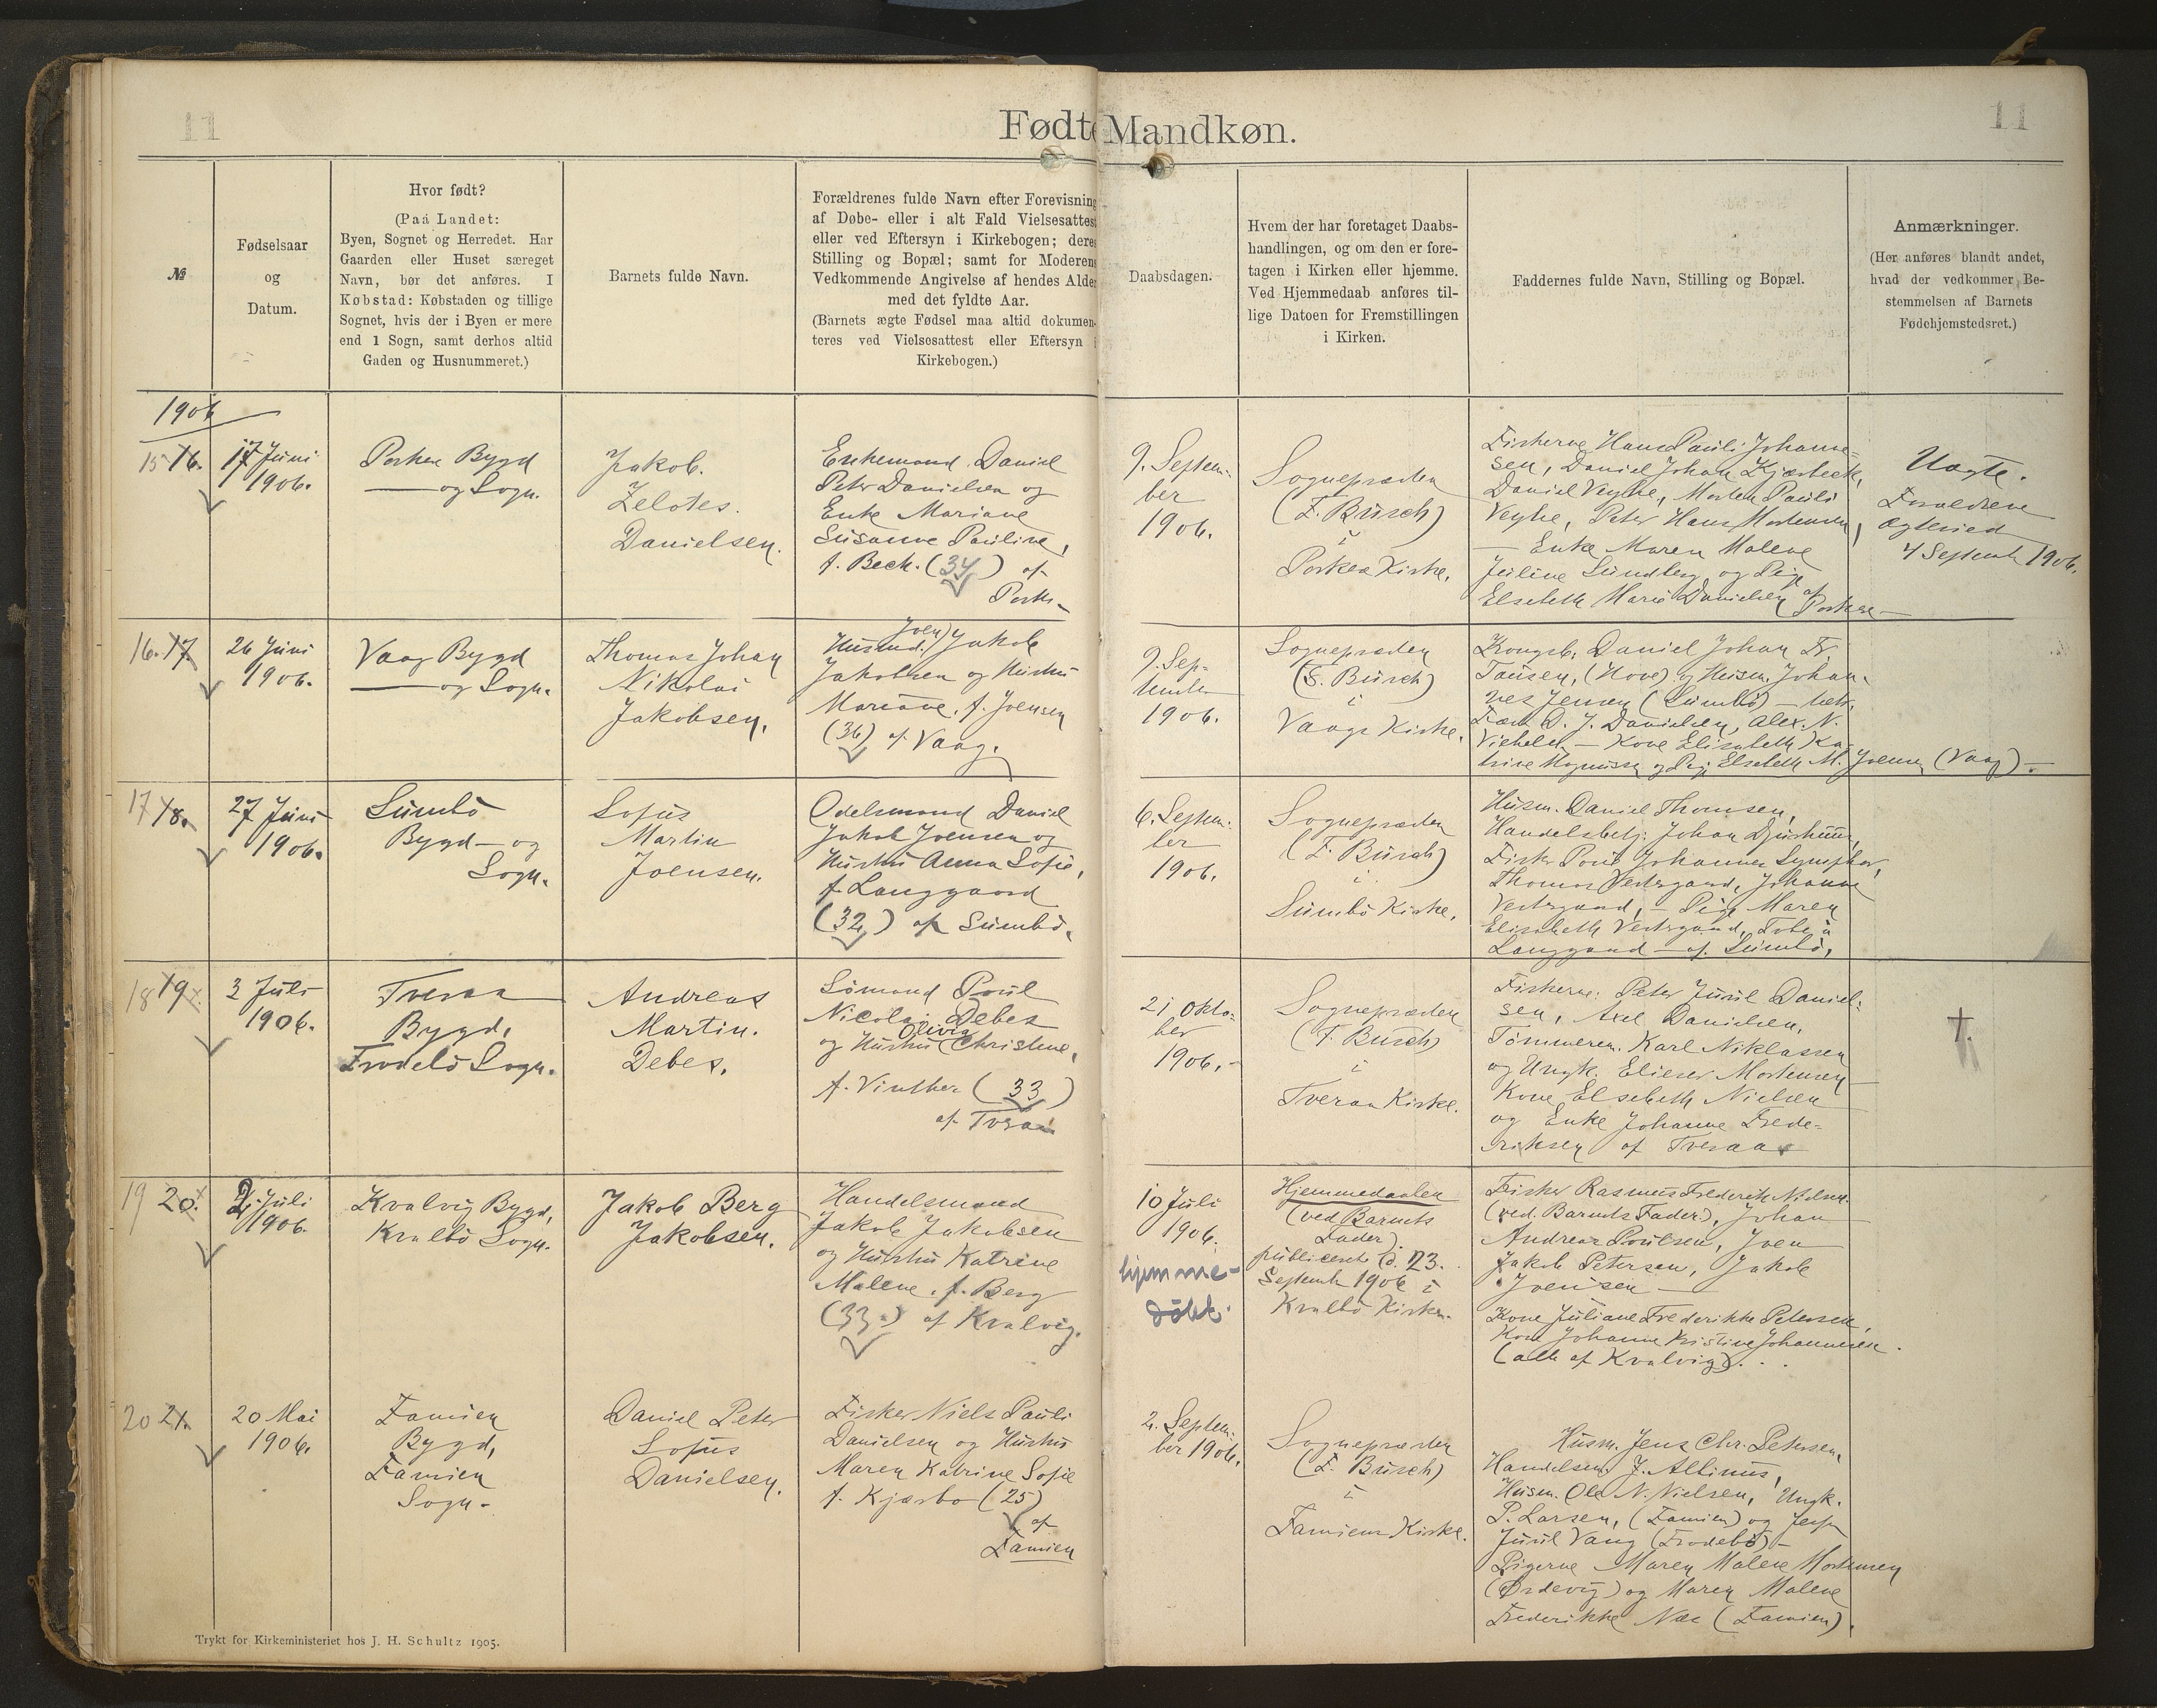 11
Fødte Mandkøn.
11
№
Fødselsaar
og
Datum.
Hvor født?
(Paa Landet:
Byen, Sognet og Herredet. Har
Gaarden eller Huset særeget
Navn, bør det anføres. I
Købstad: Købstaden og tillige
Sognet, hvis der i Byen er mere
end 1 Sogn, samt derhos altid
Gaden og Husnummeret.)
Barnets fulde Navn.
Forældrenes fulde Navn efter Forevisning
af Døbe- eller i alt Fald Vielsesattest
eller ved Eftersyn i Kirkebogen; deres
Stilling og Bopæl; samt for Moderens
Vedkommende Angivelse af hendes Alder
med det fyldte Aar.
(Barnets ægte Fødsel maa altid dokumen-
teres ved Vielsesattest eller Eftersyn i
Kirkebogen.)
Daabsdagen.
Hvem der har foretaget Daabs-
handlingen, og om den er fore-
tagen i Kirken eller hjemme.
Ved Hjemmedaab anføres til-
lige Datoen for Fremstillingen
i Kirken.
Faddernes fulde Navn, Stilling og Bopæl.
Anmærkninger.
(Her anføres blandt andet,
hvad der vedkommer Be-
stemmelsen af Barnets
Fødehjemstedsret.)
1906
15 16.
17 Juni
1906.
Porkere Bygd
— og Sogn.
Jakob.
Zelotes.
Danielsen.
Enkemand Daniel
Peter Danielsen og
Enke Mariane
Susanne Pauline,
f. Bech. (34) af
Pork.
9. Septem-
ber
1906.
Sognepræsten
(F. Busch)
i
Porkere Kirke.
Fiskerne Hans Pauli Johanne-
sen, Daniel Johan Kjærbeck,
Daniel Veyhe, Morten Pauli
Veyhe, Peter Hans Mortensen,
— Enke Maren Malene
Juline Lundberg og Pige
Elsebeth Marie Danielsen af Porkere —
Uægte.
Forældrene
ægteviet
4 Septemb 1906.
16. 17.
26 Juni
1906.
Vaag Bygd
— og Sogn.
Thomas Johan
Nikolai
Jakobsen.
Husmd. (Joen) Jakob
Jakobsen og Hustru
Mariane, f. Joensen
(36) af Vaag.
9. Sep-
tember
1906.
Sognepræsten
(F. Busch)
i
Vaags Kirke.
Kongsb. Daniel Johan Fr.
Tausen, (Hove) og Husm. Johan-
nes Jensen (Sumbø) —
D. J. Danielsen, Alex. N.
Vilhelm — Kone Elisabeth Ka-
trine Magnussen og Pige Elsebeth M. Joensen (Vaag) —
17 18.
27 Juni
1906.
Sumbø
Bygd — og
Sogn.
Sofus
Martin
Joensen.
Odelsmand Daniel
Jakob Joensen og
Hustru Anna Sofie,
f. Langgaard
(32) af Sumbø.
6. Septem-
ber
1906.
Sognepræsten
(F. Busch)
i
Sumbø Kirke.
Husm. Daniel Thomsen,
Handelsbetj. Johan Djurhuus,
Fisker Poul Johannes
Thomas Vestergaard, Johanne
Vestergaard, — Pige Maren
Elisabeth Vestergaard,
Langgaard — af Sumbø.
18 19.
3 Juli
1906.
Tveraa
Bygd,
Frodebø Sogn.
Andreas
Martin.
Debes.
Sømand Poul
Nicolai Debes
og Hustru Olivia Christine,
f. Vinther (33)
af Tveraa
21 Okto-
ber
1906. —
Sognepræsten
(F. Busch)
i
Tveraa Kirke.
Fiskerne: Peter Juul Daniel-
sen, Axel Danielsen,
Tømmerm. Karl Niklassen
og Ungk. Elieser Mortensen —
Kone Elsebeth Nielsen
og Enke Johanne Frede-
riksen af Tveraa
†.
19 20.
2 Juli
1906.
Kvalvig Bygd,
Kvalbø Sogn.
Jakob Berg
Jakobsen.
Handelsmand
Jakob Jakobsen
og Hustru Katrine
Malene, f. Berg
(33.) af Kvalvig.
10 Juli
1906.
hjemme-
døbt.
Hjemmedaaben
(ved Barnets
Fader).
publiceret d. 23.
September 1906 i
Kvalbø Kirke.
Fisker Rasmus Frederik Nielsen
(ved. Barnets Fader), Johan
Andreas Poulsen, Joen
Jakob Petersen, Jakob
Joensen —
Kone Juliane Frederikke Petersen,
Kone Johanne Kristine Johannesen.
(alle af Kvalvig).
20 21.
20 Mai
1906.
Famien
Bygd,
Famien
Sogn.
Daniel Peter
Sofus
Danielsen.
Fisker Niels Pauli
Danielsen og Hustru
Maren Katrine Sofie
f. Kjærbo (25)
af
Famien
2. Septem-
ber 1906.
Sognepræsten
(F. Busch)
i
Famien Kirke.
Husm. Jens Chr. Petersen,
Handelsm. J. Altinius,
Husm. Ole N. Nielsen, Ungk.
P. Larsen, (Famien) og
Juul Vang (Frodebø) —
Pigerne Maren Malene Mortensen
(Ørdevig) og Maren Malene
Frederikke Næs (Famien).
Trykt for Kirkeministeriet hos J. H. Schultz 1905.